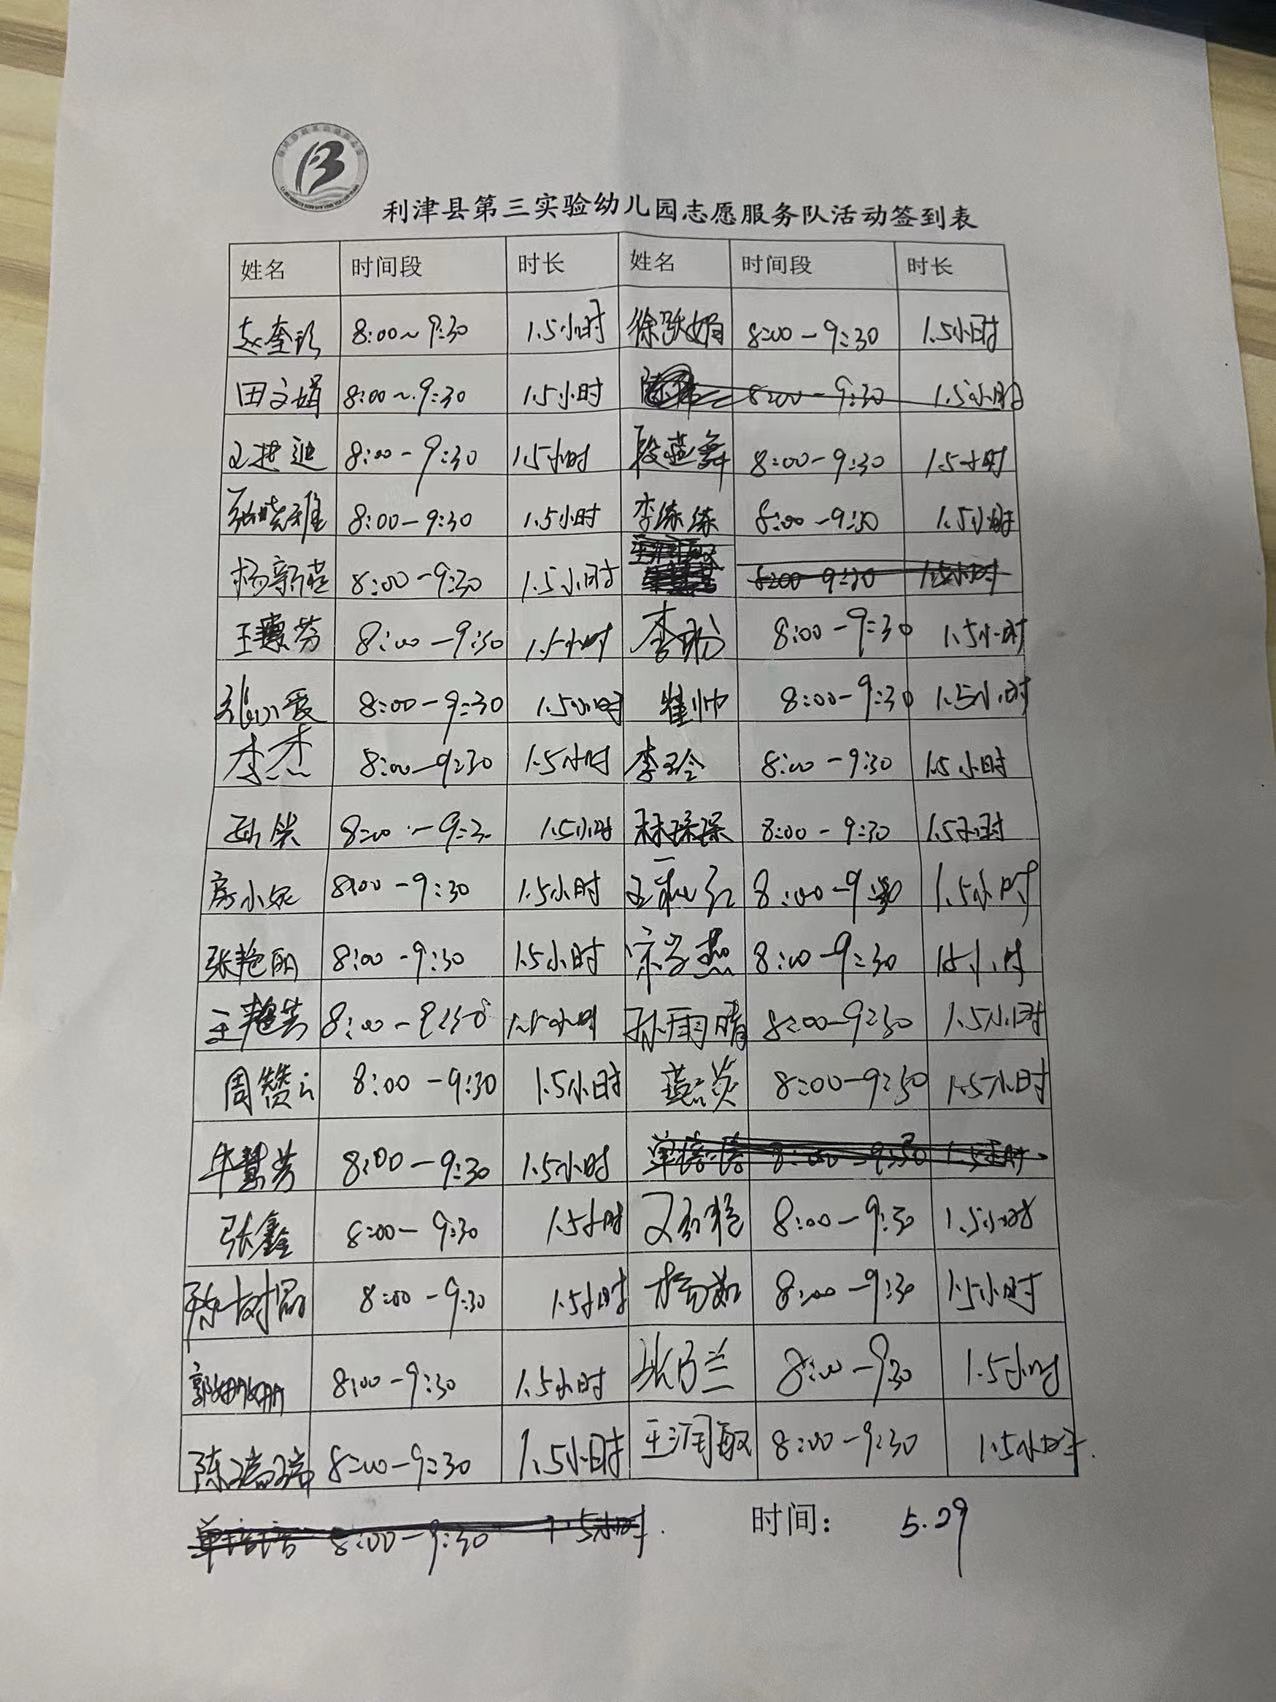 利津县第三实验幼儿园志愿服务队活动签到表
姓名 时间段 时长 姓名 时间段 时长
8:00~9:30 1.5小时 徐跃娟 8:00-9:30 1.5小时
田文娟 8:00~9:30 1.5小时 8:00-9:30 1.5小时
8:00-9:30 1.5小时 段燕舞 8:00-9:30 1.5小时
张晓雅 8:00-9:30 1.5小时 李练练 8:00-9:30 1.5小时
杨新燕 8:00-9:30 1.5小时 8:00-9:30 1.5小时
王 芬 8:00-9:30 1.5小时 李 8:00-9:30 1.5小时
8:00-9:30 1.5小时 崔帅 8:00-9:30 1.5小时
李杰 8:00-9:30 1.5小时 李玲 8:00-9:30 1.5小时
8:00-9:3 1.5小时 林琛琛 8:00-9:30 1.5小时
房小 8:00-9:30 1.5小时 王 红 8:00-9:30 1.5小时
张艳丽 8:00-9:30 1.5小时 宋学燕 8:00-9:30 1.5小时
王艳芳 8:00-9:30 1.5小时 孙雨晴 8:00-9:30 1.5小时
周赞 8:00-9:30 1.5小时 8:00-9:30 1.5小时
牛慧芳 8:00-9:30 1.5小时 单倍倍 8:00-9:30 1.5小时
张鑫 8:00-9:30 1.5小时 8:00-9:30 1.5小时
陈树 8:00-9:30 1.5小时 8:00-9:30 1.5小时
郭姗姗 8:00-9:30 1.5小时 张 兰 8:00-9:30 1.5小时
陈瑞瑞 8:00-9:30 1.5小时 王润 8:00-9:30 1.5小时
8:00-9:30 1.5小时 时间: 5.29